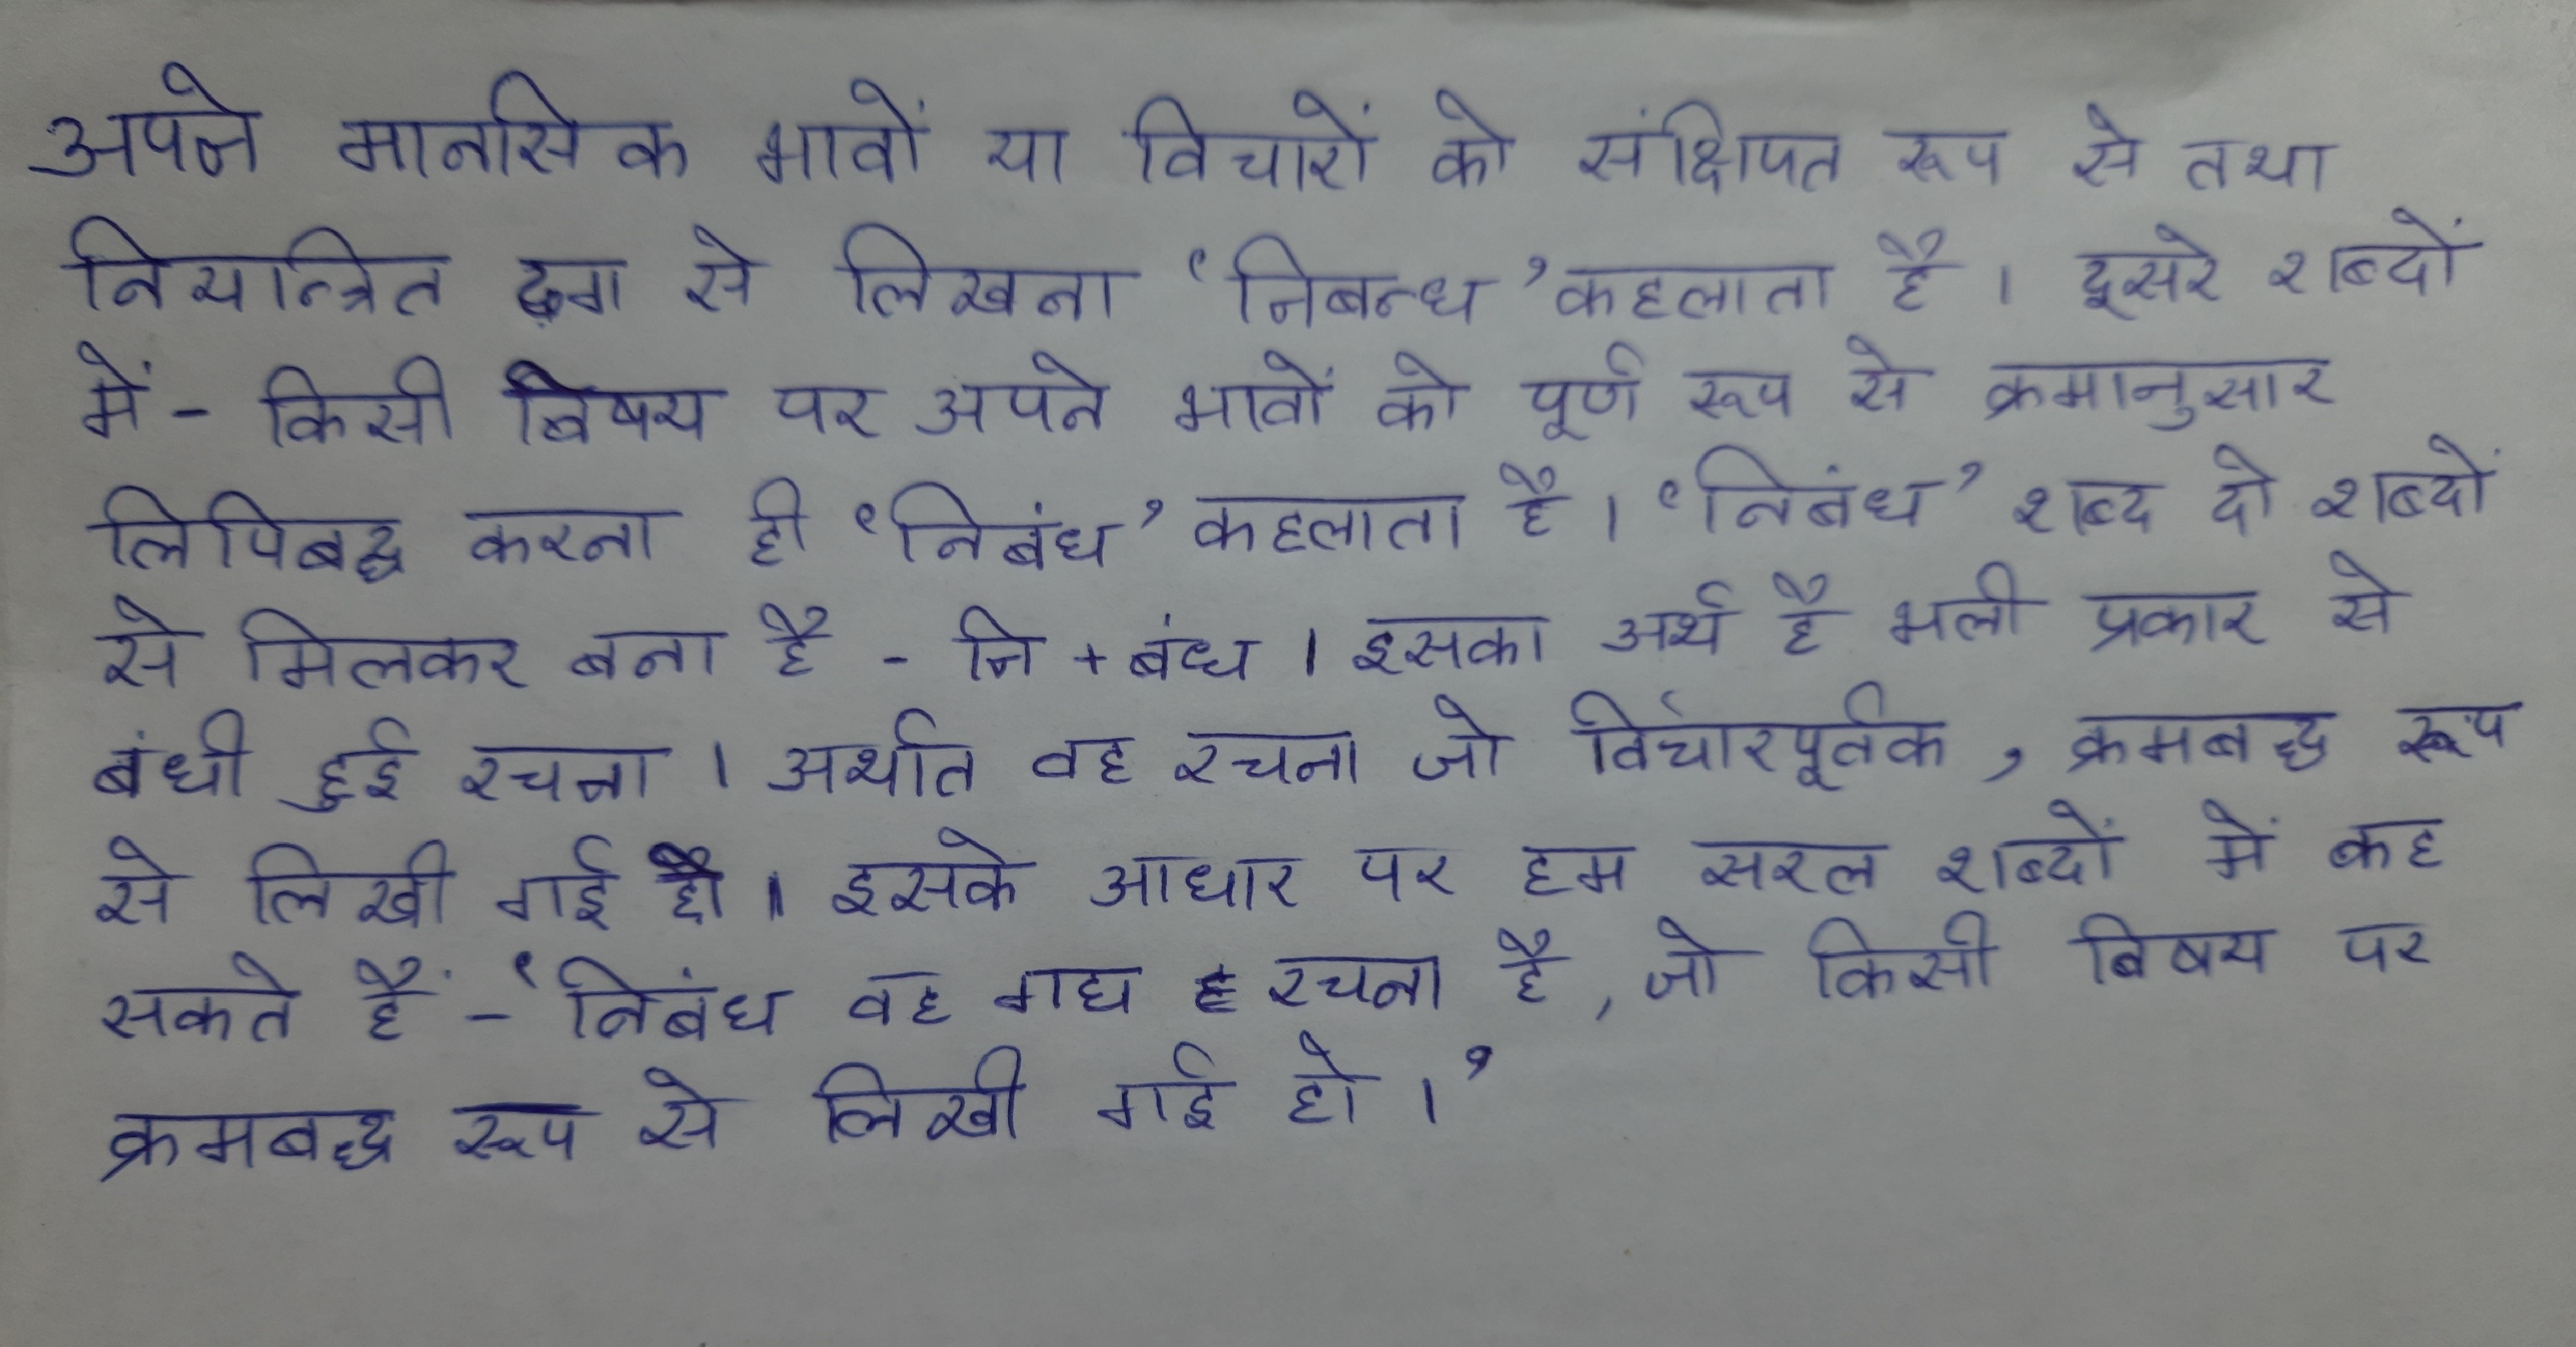 अपने मानसिक भावों या विचारों को संक्षिप्त रूप से तथा
नियन्त्रित ढ़ग से लिखना 'निबन्ध' कहलाता है । दूसरे शब्दों
में - किसी विषय पर अपने भावों को पूर्ण रूप से क्रमानुसार
लिपिबद्ध करना ही 'निबंध' कहलाता है । 'निबंध' शब्द दो शब्दों
से मिलकर बना है - नि + बंध । इसका अर्थ है भली प्रकार से
बंधी हुई रचना । अर्थात वह रचना जो विचारपूर्वक , क्रमबद्ध रूप
से लिखी गई हो । इसके आधार पर हम सरल शब्दों में कह
सकते हैं - 'निबंध वह गद्य रचना है , जो किसी विषय पर
क्रमबद्ध रूप से लिखी गई हो ।'